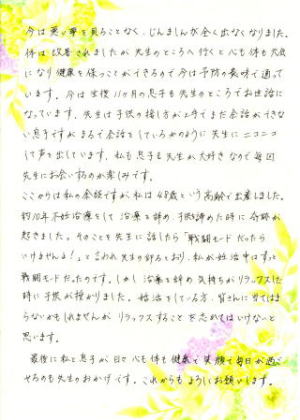 今は悪い夢を見ることなく、じんましんが全く出なくなりました。
体は改善されましたが先生のところへ行くと心も体も元気
になり健康を保つことができるので今は予防の意味で通っ
ています。今は生後11ヶ月の息子も先生のところでお世話に
なっています。先生は子供の接し方が上手でまだ会話ができな
い息子ですがまるで会話をしているかのように先生にニコニコ
して声を出しています。私も息子も先生が大好きなので毎回
先生にお会いするのが楽しみです。
ここからは私の余談ですが、私は48歳という高齢で出産しました。
約10年不妊治療をして治療を辞め、子供を諦めた時に奇跡が
起きました。そのことを先生に話したら「戦闘モードだったら
いけませんよ!」と言われ先生の仰るとおり、私が妊活中はずっと
戦闘モードだったのです。しかし治療を辞め気持ちがリラックスした
時に子供が授かりました。妊活をしている方、皆さんに当てはま
らないかもしれませんがリラックスすることを忘れてはいけないと
思います。
最後に私と息子が日々心も体も健康で笑顔で毎日が過ご
せるのも先生のおかげです。これからもよろしくお願いします。